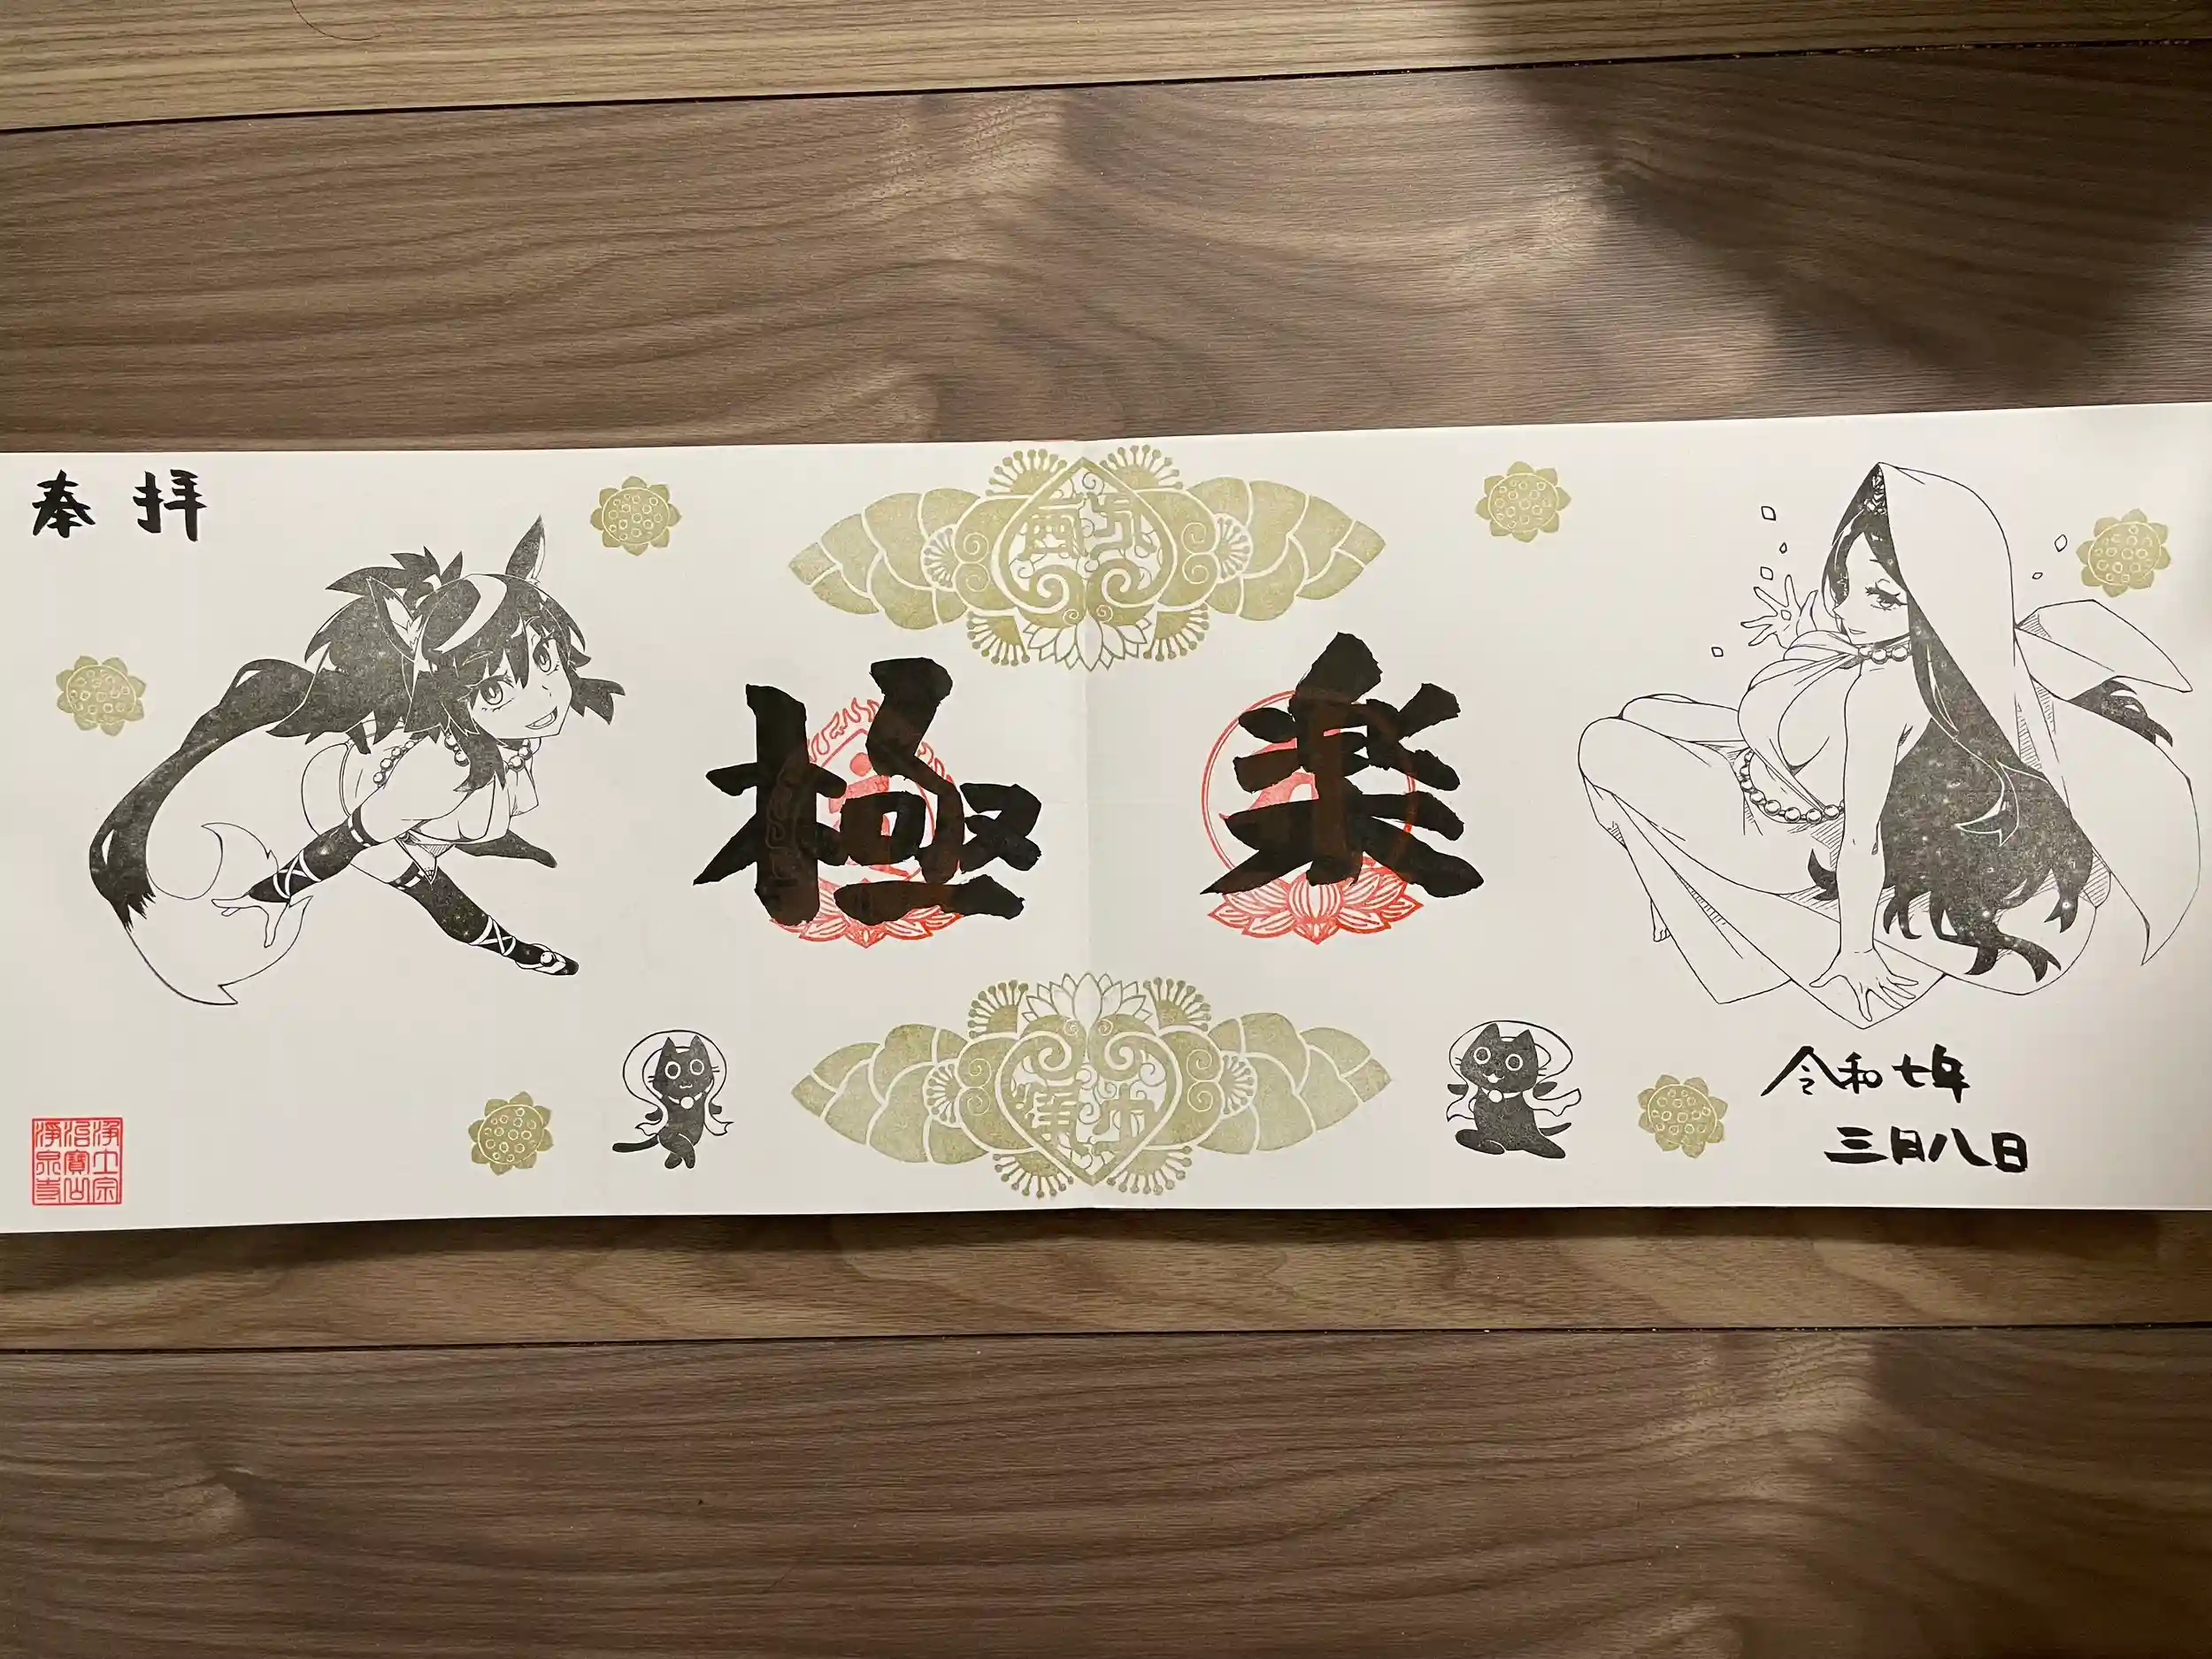 奉拝
極楽
令和七年
三月八日
浄土宗
治寶山
浄泉寺